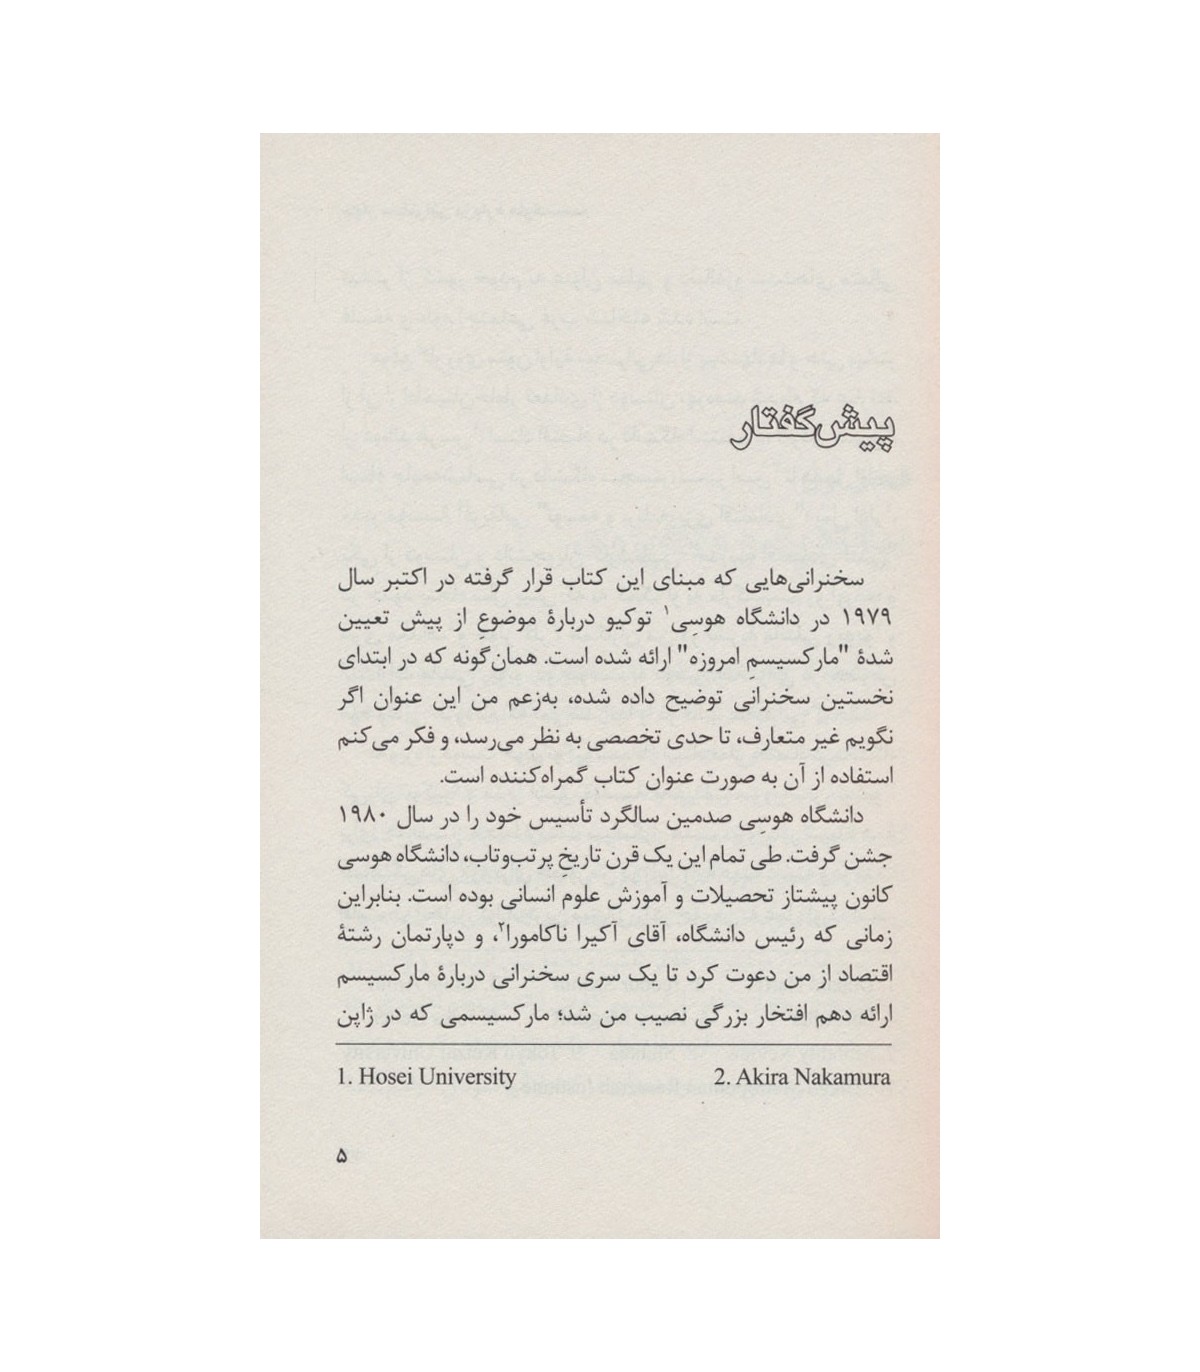 پیش‌گفتار
سخنرانی‌هایی که مبنای این کتاب قرار گرفته در اکتبر سال
۱۹۷۹ در دانشگاه هوسِی۱ توکیو دربارهٔ موضوعِ از پیش تعیین
شدهٔ "مارکسیسمِ امروزه" ارائه شده است. همان‌گونه که در ابتدای
نخستین سخنرانی توضیح داده شده، به‌زعم من این عنوان اگر
نگویم غیر متعارف، تا حدی تخصصی به نظر می‌رسد، و فکر می‌کنم
استفاده از آن به صورت عنوان کتاب گمراه‌کننده است.
دانشگاه هوسِی صدمین سالگرد تأسیس خود را در سال ۱۹۸۰
جشن گرفت. طی تمام این یک قرن تاریخِ پرتب‌وتاب، دانشگاه هوسی
کانون پیشتاز تحصیلات و آموزش علوم انسانی بوده است. بنابراین
زمانی که رئیس دانشگاه، آقای آکیرا ناکامورا۲، و دپارتمان رشتهٔ
اقتصاد از من دعوت کرد تا یک سری سخنرانی دربارهٔ مارکسیسم
ارائه دهم افتخار بزرگی نصیب من شد؛ مارکسیسمی که در ژاپن
1. Hosei University 2. Akira Nakamura
۵